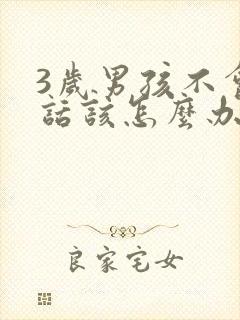 3歲男孩不會
話該怎麼辦
良家宅女